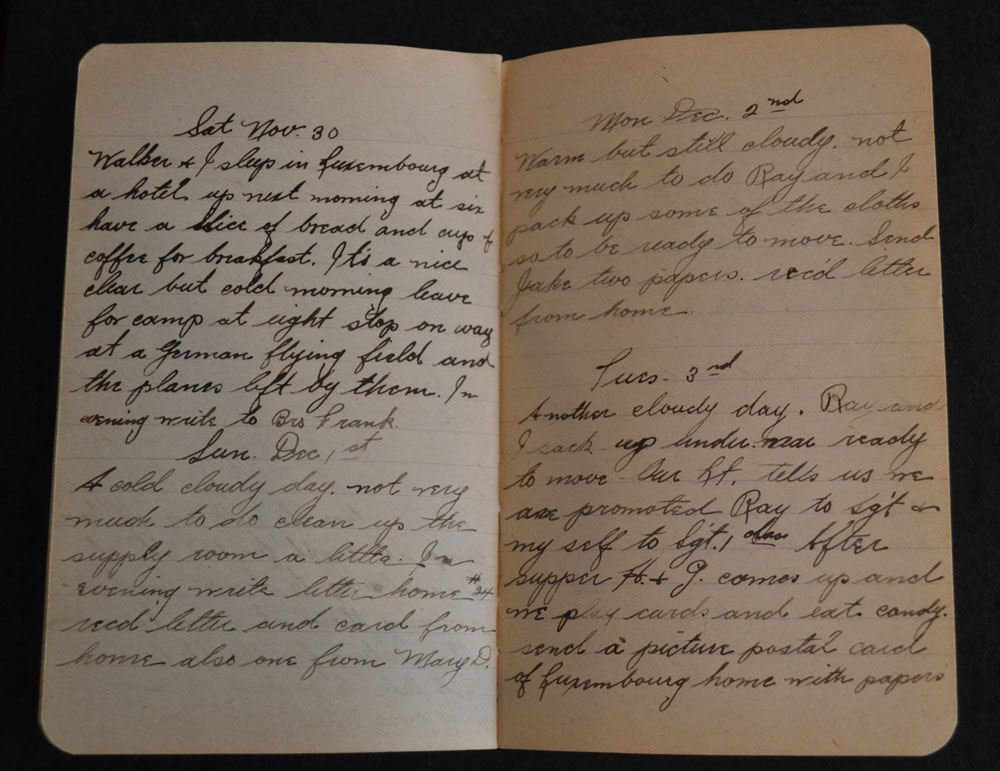 Sat Nov. 30
Walker & I sleep in Luxembourg at
a hotel up next morning at six
have a slice of bread and cup of
coffee for breakfast. It's a nice
clear but cold morning leave
for camp at eight stop on way
at a German flying field and
the planes left by them. In
evening write to Bro Frank.
Sun. Dec, 1st
A cold cloudy day. not very
much to do clean up the
supply room a little. In
evening write letter home #24
recd letter and card from
home also one from Mary D.
Mon Dec. 2nd
Warm but still cloudy. not
very much to do Ray and I
pack up some of the cloths
so to be ready to move. Send
Jake two papers. rec'd letter
from home.
Tues. 3rd
Another cloudy day. Ray and
I sack up under-wear ready
to move - Our Lt. tells us we
are promoted Ray to Sgt &
my self to Sgt. 1 class After
supper H. & J. comes up and
we play cards and eat candy.
send a picture postal card
of Luxembourg home with papers